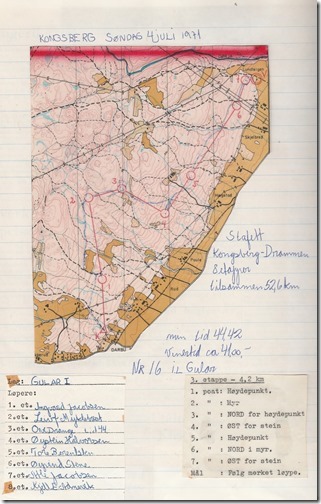 KONGSBERG SØNDAG 4 JULI 1971
Stafett
Kongsberg-Drammen
8 etapper
tilsammen 52,6 km
min tid 44,42
Vinnertid ca 41,00
NR 16 IL Gular
DARBU
Lag: GULAR I
Løpere:
1. et. Ingvald Jacobsen
2. et.
3. et. Ove Drange tid 44
4. et. Øystein Halvorsen
5. et. Tore Berentsen
6. et. Øyvind Stene
7. et. Atle Jacobsen
8. et. Kjell
3. etappe - 4,2 km
1. post: Høydepunkt.
2. " : Myr
3. " : NORD for høydepunkt
4. " : ØST for stein
5. " : Høydepunkt
6. " : NORD i myr.
7. " : ØST for stein
Mål : Følg merket løype.